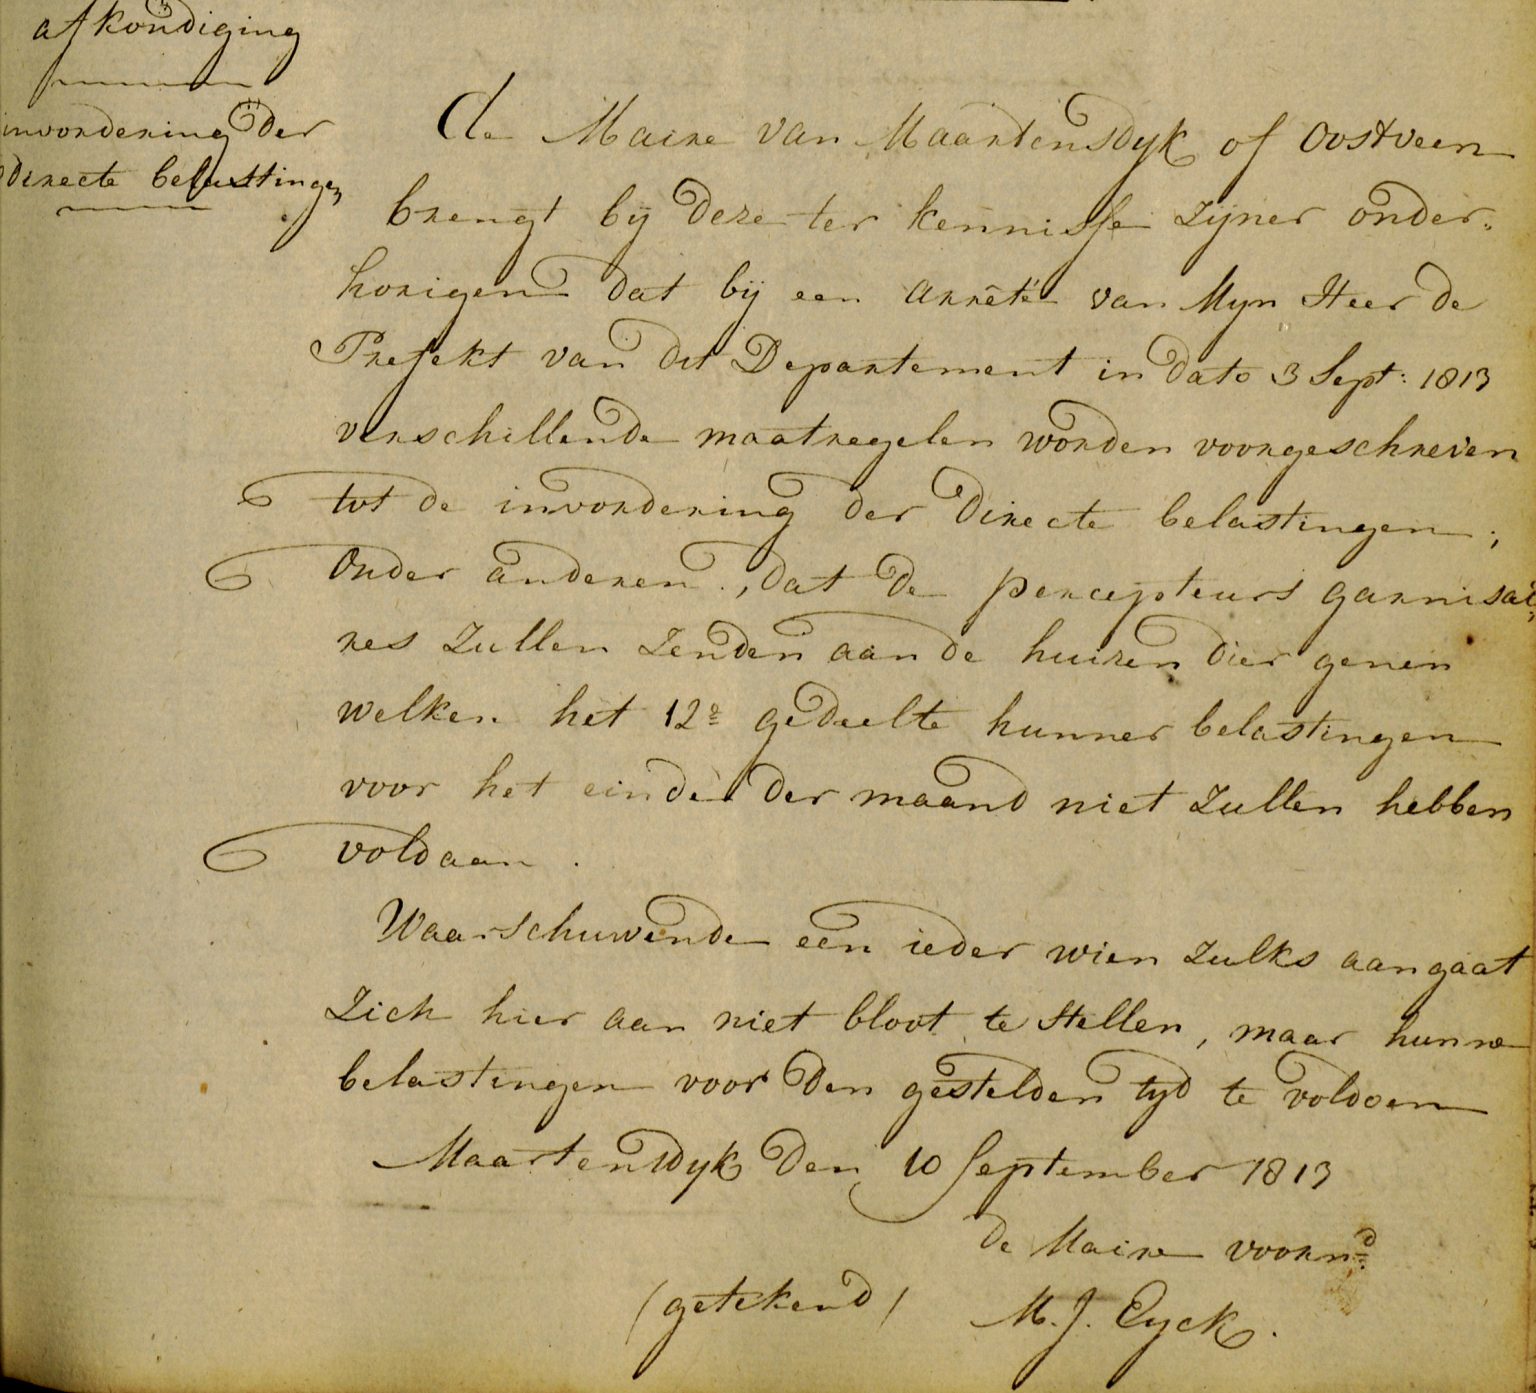 afkondiging
invordering der
directe belastingen
de Maire van Maartensdyk of Oostveen
brengt bij deze ter kennisse zijner onder-
horigen dat bij een arrêté van Myn Heer de
Prefekt van dit Departement in dato 3 Sept: 1813
verschillende maatregelen worden voorgeschreven
tot de invordering der directe belastingen;
onder anderen, dat de percepteurs garnisai-
res zullen zenden aan de huizen dier genen
welken het 12e gedeelte hunner belastingen
voor het einde der maand niet zullen hebben
voldaan.
Waarschuwende een ieder wien zulks aangaat
zich hier aan niet bloot te stellen, maar hunne
belastingen voor den gestelden tyd te voldoen
Maartensdyk den 10 September 1813
de Maire voornd
(getekend) M. J. Eyck.